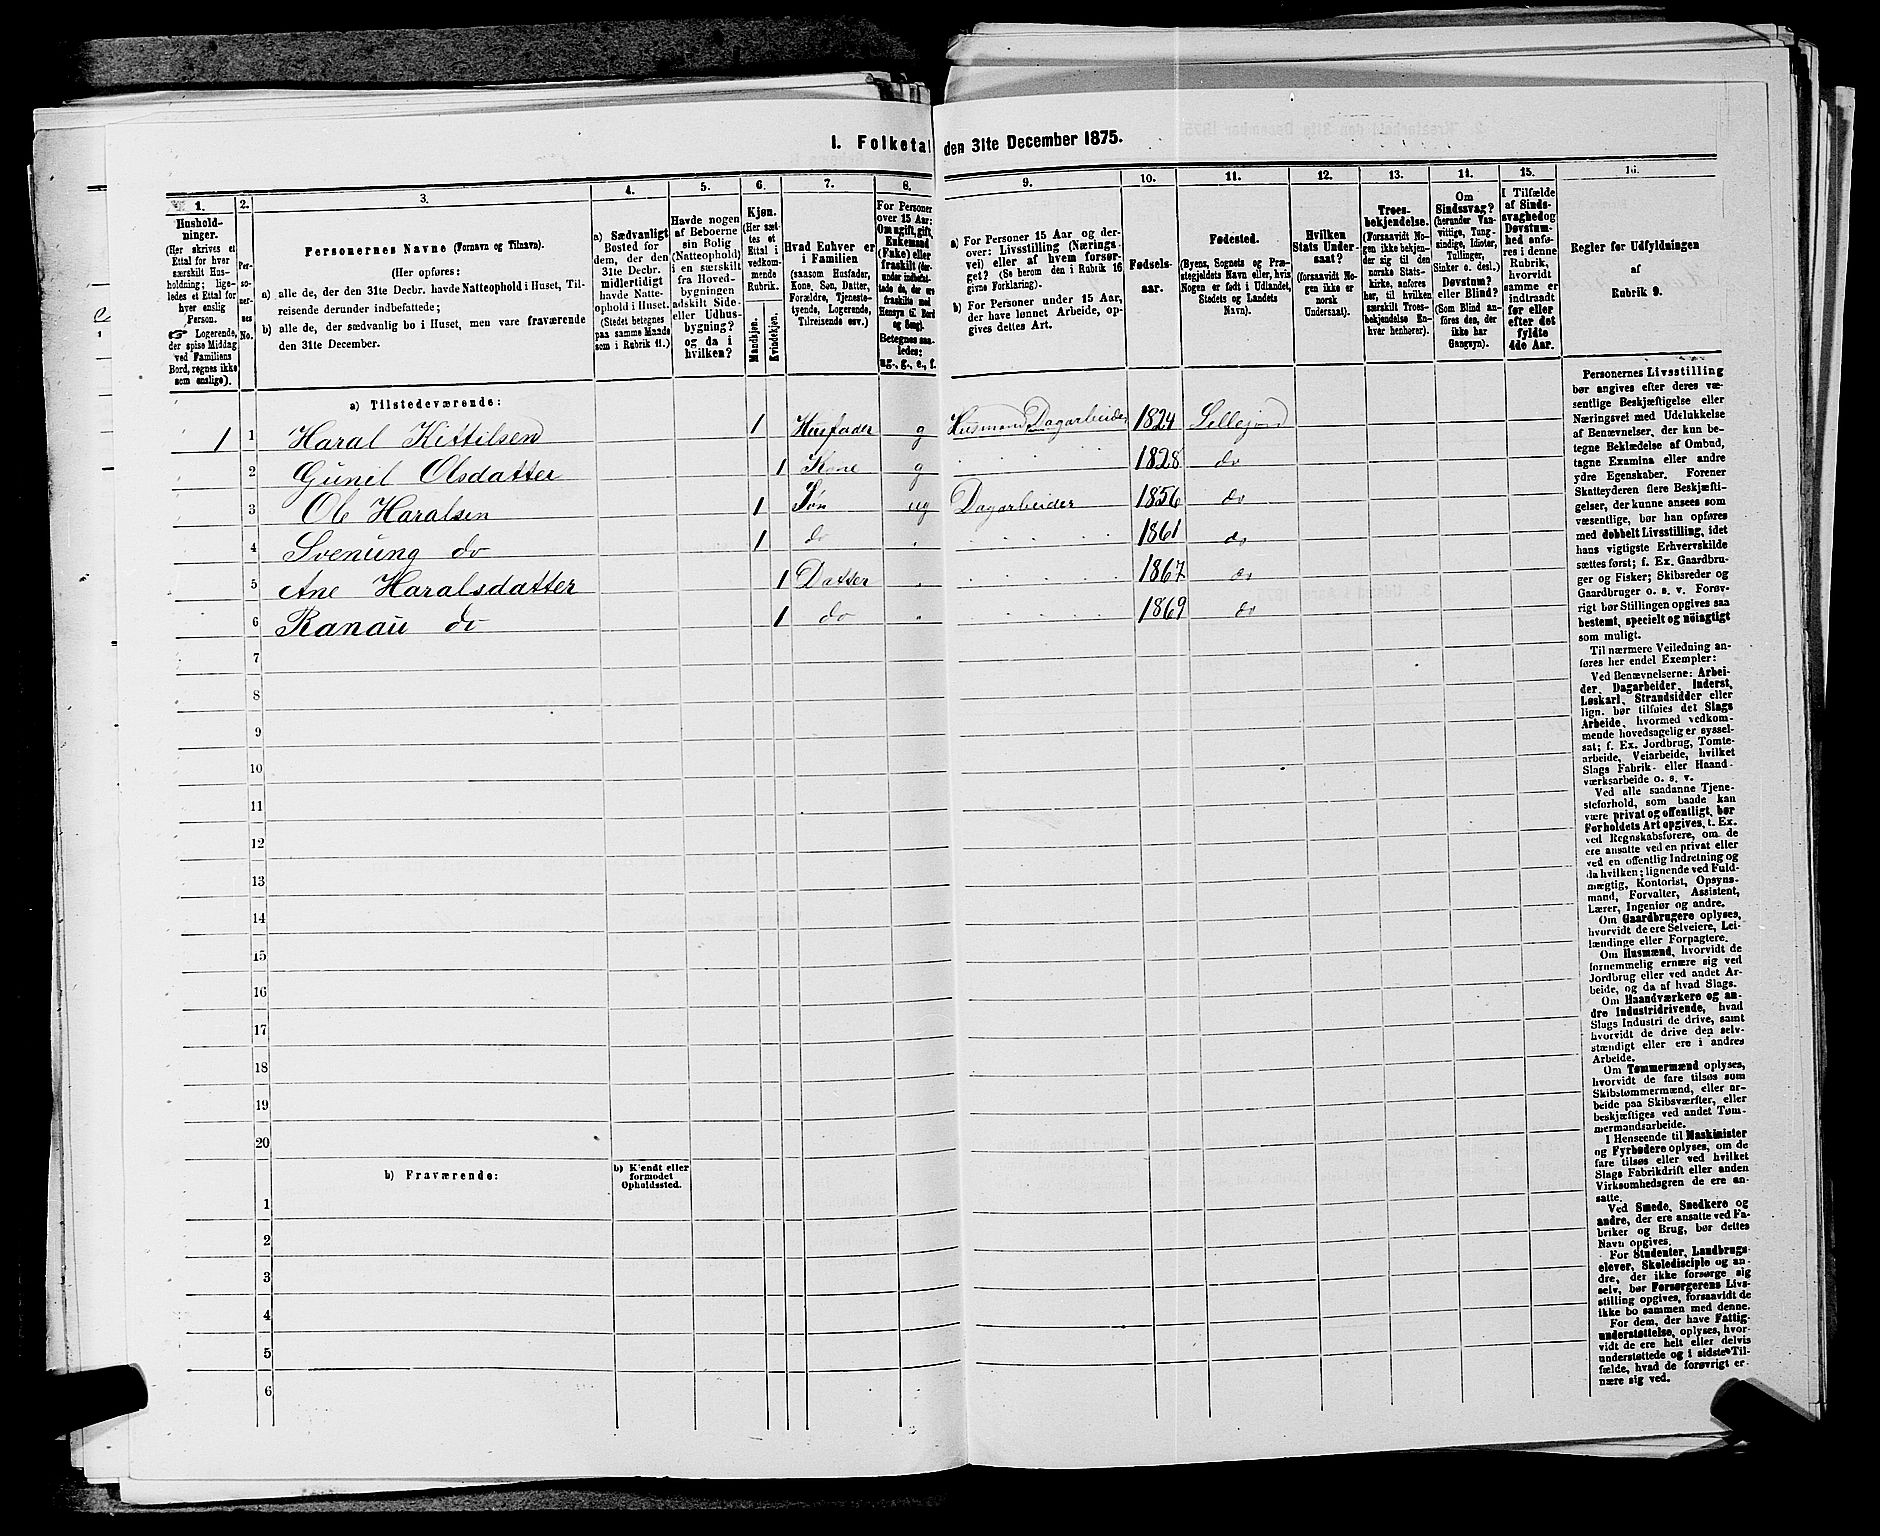 1. Folketal den 31te December 1875.
1. 2. 3. 4. 5. 6. 7. 8. 9. 10. 11. 12. 13. 14. 15. 16.
Hushold-
ninger.
(Her skrives et
Ettal for hver
særskilt Hus-
holdning; lige-
ledes et Ettal for
hver enslig
Person.
Logerende,
der spise Middag
ved Familiens
Bord, regnes ikke
som enslige).
Per-
soner-
nes
No.
Personernes Navne (Fornavn og Tilnavn).
(Her opføres:
a) alle de, der den 31te Decbr. havde Natteophold i Huset, Til-
reisende derunder indbefattede;
b) alle de, der sædvanlig bo i Huset, men vare fraværende
den 31te December.
a) Sædvanligt
Bosted for
dem, der den
31te Decbr.
midlertidigt
havde Natte-
ophold i Huset.
(Stedet betegnes
paa samme Maade
som i Rubrik 11.)
Havde nogen
af Beboerne
sin Bolig
(Natteophold)
i en særskilt
fra Hoved-
bygningen
adskilt Side-
eller Udhus-
bygning?
og da i
hvilken?
Kjøn.
(Her sæt-
tes et
Ettal i
vedkom-
mende
Rubrik.
Mandkjøn.
Kvindekjøn.
Hvad Enhver er
i Familien
(saasom Husfader,
Kone, Søn, Datter,
Forældre, Tjeneste-
tyende, Logerende,
Tilreisende osv.)
For Personer
over 15 Aar:
Om ugift, gift,
Enkemand
(Enke) eller
fraskilt (der-
under indbefat-
tede de, der ere
fraskilte med
Hensyn til Bord
og Seng).
Betegnes saa-
ledes:
ug-, g-, e-, f.
a) For Personer 15 Aar og der-
over: Livsstilling (Nærings-
vei) eller af hvem forsør-
get? (Se herom den i Rubrik 16
givne Forklaring).
b) For Personer under 15 Aar,
der have lønnet Arbeide, op-
gives dettes Art.
Fødsels-
aar.
Fødested.
(Byens, Sognets og Præ-
stegjeldets Navn eller, hvis
Nogen er født i Udlandet,
Stedets og Landets
Navn).
Hvilken
Stats Under-
saat?
(forsaavidt No-
gen ikke er
norsk
Undersaat).
Troes-
bekjendelse.
(Forsaavidt No-
gen ikke bekjen-
der sig til den
norske Stats-
kirke, anføres
her, til hvilken
særskilt Troes-
bekjendelse En-
hver henhører).
Om
Sindssvag?
(herunder Van-
vittige, Tung-
sindige, Idioter,
Tullinger,
Sinker o. desl.)
Døvstum?
eller Blind?
(Som Blind an-
føres des, der
ikke har
Gangsyn).
I Tilfælde
af Sinds-
svaghed og
Døvstum-
hed anfø-
res i denne
Rubrik,
hvorvidt
samme er
indtraadt
før eller
efter det
fyldte
4de Aar.
Regler for Udfyldningen
af
Rubrik 9.
a) Tilstedeværende:
1 1 Haral Kittilsen 1 Husfader g Husmand Dagarbeider 1824 Sillejord
2 Gunil Olsdatter 1 Kone g 1828 do
3 Ole Haralsen 1 Søn ug Dagarbeider 1856 do
4 Svenung do 1 do 1861 do
5 Ane Haralsdatter 1 Datter 1867 do
6 Ranau do 1 do 1869 do
7
8
9
10
11
12
13
14
15
16
17
18
19
20
b) Fraværende:
b) Kjendt eller
formodet
Opholdssted.
1
2
3
4
5
6
Personernes Livsstilling
bør angives efter deres væ-
sentlige Beskjæftigelse eller
Næringsvei med Udelukkelse
af Benævnelser, der kun be-
tegne Beklædelse af Ombud,
tagne Examina eller andre
ydre Egenskaber. Forener
Skatteyderen flere Beskjæfti-
gelser, der kunne ansees som
væsentlige, bør han opføres
med dobbelt Livsstilling, idet
hans vigtigste Erhvervskilde
sættes først; f. Ex. Gaardbru-
ger og Fisker; Skibsreder og
Gaardbruger o. s. v. Forøv-
rigt bør Stillingen opgives saa
bestemt, specielt og nøiagtigt
som muligt.
Til nærmere Veiledning an-
føres her endel Exempler:
Ved Benævnelserne: Arbei-
der, Dagarbeider, Inderst,
Løskarl, Strandsidder eller
lign. bør tilføies det Slags
Arbeide, hvormed vedkom-
mende hovedsagelig er syssel-
sat; f. Ex. Jordbrug, Tomte-
arbeide, Veiarbeide, hvilket
Slags Fabrik- eller Haand-
værksarbeide o. s. v.
Ved alle saadanne Tjene-
steforhold, som baade kan
være privat og offentligt, bør
Forholdets Art opgives, t. Ex.
ved Regnskabsførere, om de
ere ansatte ved en privat eller
ved en offentlig Indretning og
da hvilken; lignende ved Fuld-
mægtig, Kontorist, Opsyns-
mand, Forvalter, Assistent,
Lærer, Ingeniør og andre.
Om Gaardbrugere oplyses,
hvorvidt de ere Selveiere, Lei-
lændinge eller Forpagtere.
Om Husmænd, hvorvidt de
fornemmelig ernære sig ved
Jordbrug eller ved andet Ar-
beide, og da af hvad Slags.
Om Haandværkere og an-
dre Industridrivende, hvad
Slags Industri de drive, samt
hvorvidt de drive den selv-
stændigt eller ere i andres
Arbeide.
Om Tømmermænd oplyses,
hvorvidt de fare tilsøs som
Skibstømmermænd, eller ar-
beide paa Skibsværfter, eller
beskjæftiges ved andet Tøm-
mermandsarbeide.
I Henseende til Maskinister
og Fyrbødere oplyses, om de
fare tilsøs eller ved hvilket
Slags Fabrikdrift eller anden
Virksomhedsgren de ere an-
satte.
Ved Smede, Snedkere og
andre, der ere ansatte ved Fa-
briker og Brug, bør dettes
Navn opgives.
For Studenter, Landbrugs-
elever, Skoledisciple og an-
dre, der ikke forsørge sig
selv, bør Forsørgerens Livs-
stilling opgives, forsaavidt de
ikke bo sammen med denne.
For dem, der have Fattig-
understøttelse, oplyses, hvor-
vidt de ere helt eller delvis
understøttede og i sidste Til-
fælde, hvad de forøvrigt er-
nære sig ved.